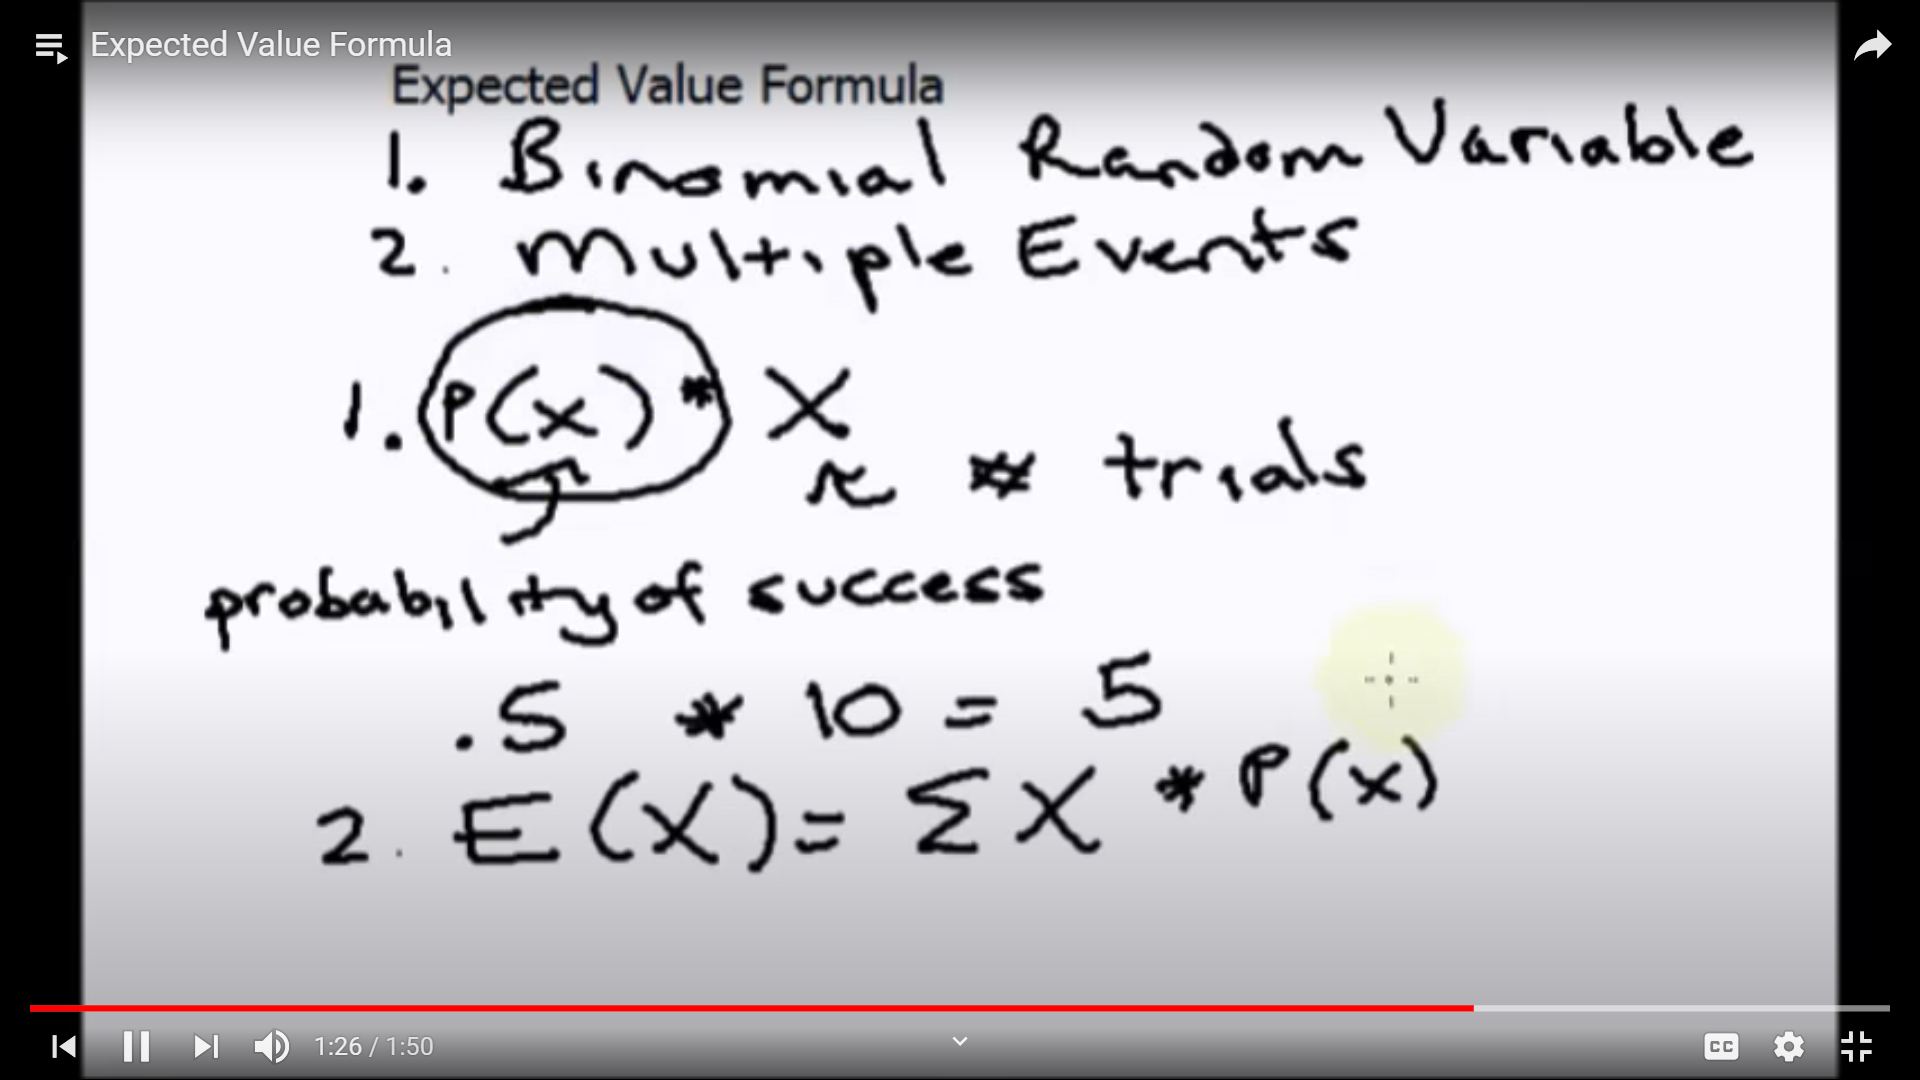 Expected Value Formula
Expected Value Formula
1. Binomial Random Variable
2. Multiple Events
1. P(x) * X
# trials
probability of success
.5 * 10 = 5
2. E(X) = Σ X * P(x)
1:26 / 1:50
CC